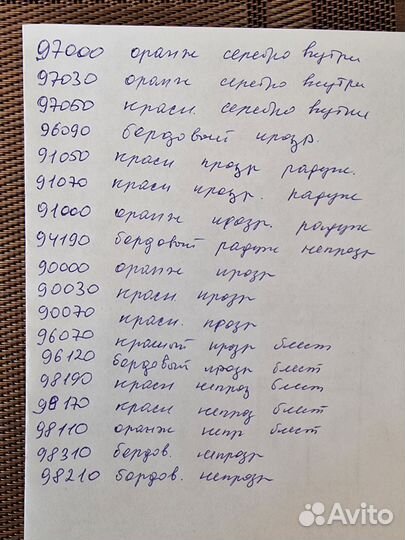 97000 оранж серебро внутри
97030 оранж серебро внутри
97050 красн. серебро внутри
96090 бордовый прозр.
91050 красн прозр радуж.
91070 красн прозр. радуж
91000 оранж прозр. радуж
94190 бордовый радуж непрозр
90000 оранж прозр
90030 красн прозр
90070 красн. прозр
96070 красный прозр блест
96120 бордовый прозр блест
98190 красн непроз блест
98170 красн непроз блест
98110 оранж непр блест
98310 бордов. непрозр
98210 бордов. непрозр
Avito